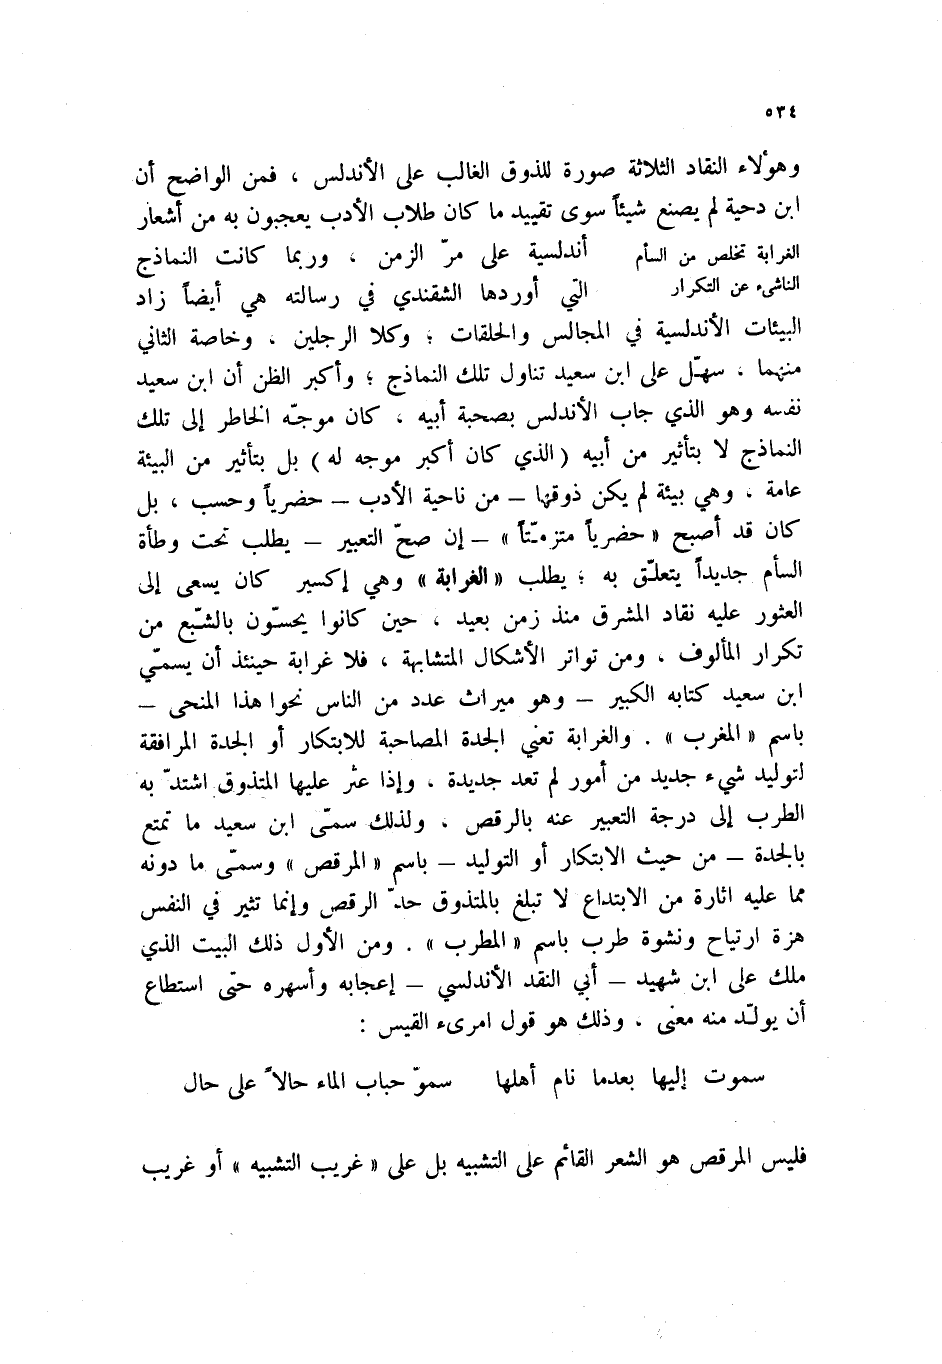 ٥٣٤
وهؤلاء النقاد الثلاثة صورة للذوق الغالب على الأندلس ، فمن الواضح أن
ابن دحية لم يصنع شيئاً سوى تقييد ما كان طلاب الأدب يعجبون به من أشعار
الغرابة تخلص من السأم
الناشىء عن التكرار
أندلسية على مرّ الزمن ، وربما كانت النماذج
التي أوردها الشقندي في رسالته هي أيضاً زاد
البيئات الأندلسية في المجالس والحلقات ؛ وكلا الرجلين ، وخاصة الثاني
منهما ، سهّل على ابن سعيد تناول تلك النماذج ؛ وأكبر الظن أن ابن سعيد
نفسه وهو الذي جاب الأندلس بصحبة أبيه ، كان موجّه الخاطر إلى تلك
النماذج لا بتأثير من أبيه ( الذي كان أكبر موجه له ) بل بتأثير من البيئة
عامة ، وهي بيئة لم يكن ذوقها – من ناحية الأدب – حضرياً وحسب ، بل
كان قد أصبح « حضرياً متزمّتاً » – إن صحّ التعبير – يطلب تحت وطأة
السأم جديداً يتعلّق به ؛ يطلب « الغرابة » وهي إكسير كان يسعى إلى
العثور عليه نقاد المشرق منذ زمن بعيد ، حين كانوا يحسّون بالشّبع من
تكرار المألوف ، ومن تواتر الأشكال المتشابهة ، فلا غرابة حينئذ أن يسمّي
ابن سعيد كتابه الكبير – وهو ميراث عدد من الناس نحوا هذا المنحى –
باسم « المغرب » . والغرابة تعني الجدة المصاحبة للابتكار أو الجدة المرافقة
لتوليد شيء جديد من أمور لم تعد جديدة ، وإذا عثر عليها المتذوق اشتدّ به
الطرب إلى درجة التعبير عنه بالرقص ، ولذلك سمّى ابن سعيد ما تمتع
بالجدة – من حيث الابتكار أو التوليد – باسم « المرقص » وسمّى ما دونه
مما عليه اثارة من الابتداع لا تبلغ بالمتذوق حدّ الرقص وإنما تثير في النفس
هزة ارتياح ونشوة طرب باسم « المطرب » . ومن الأول ذلك البيت الذي
ملك على ابن شهيد – أبي النقد الأندلسي – إعجابه وأسهره حتّى استطاع
أن يولّد منه معنى ، وذلك هو قول امرىء القيس :
سموت إليها بعدما نام أهلها سموّ حباب الماء حالاً على حال
فليس المرقص هو الشعر القائم على التشبيه بل على « غريب التشبيه » أو غريب